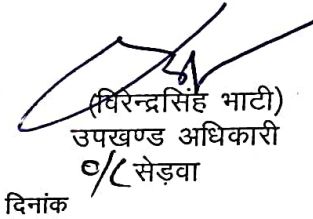 (विरेन्द्रसिंह भाटी)
उपखण्ड अधिकारी
सेड़वा
दिनांक